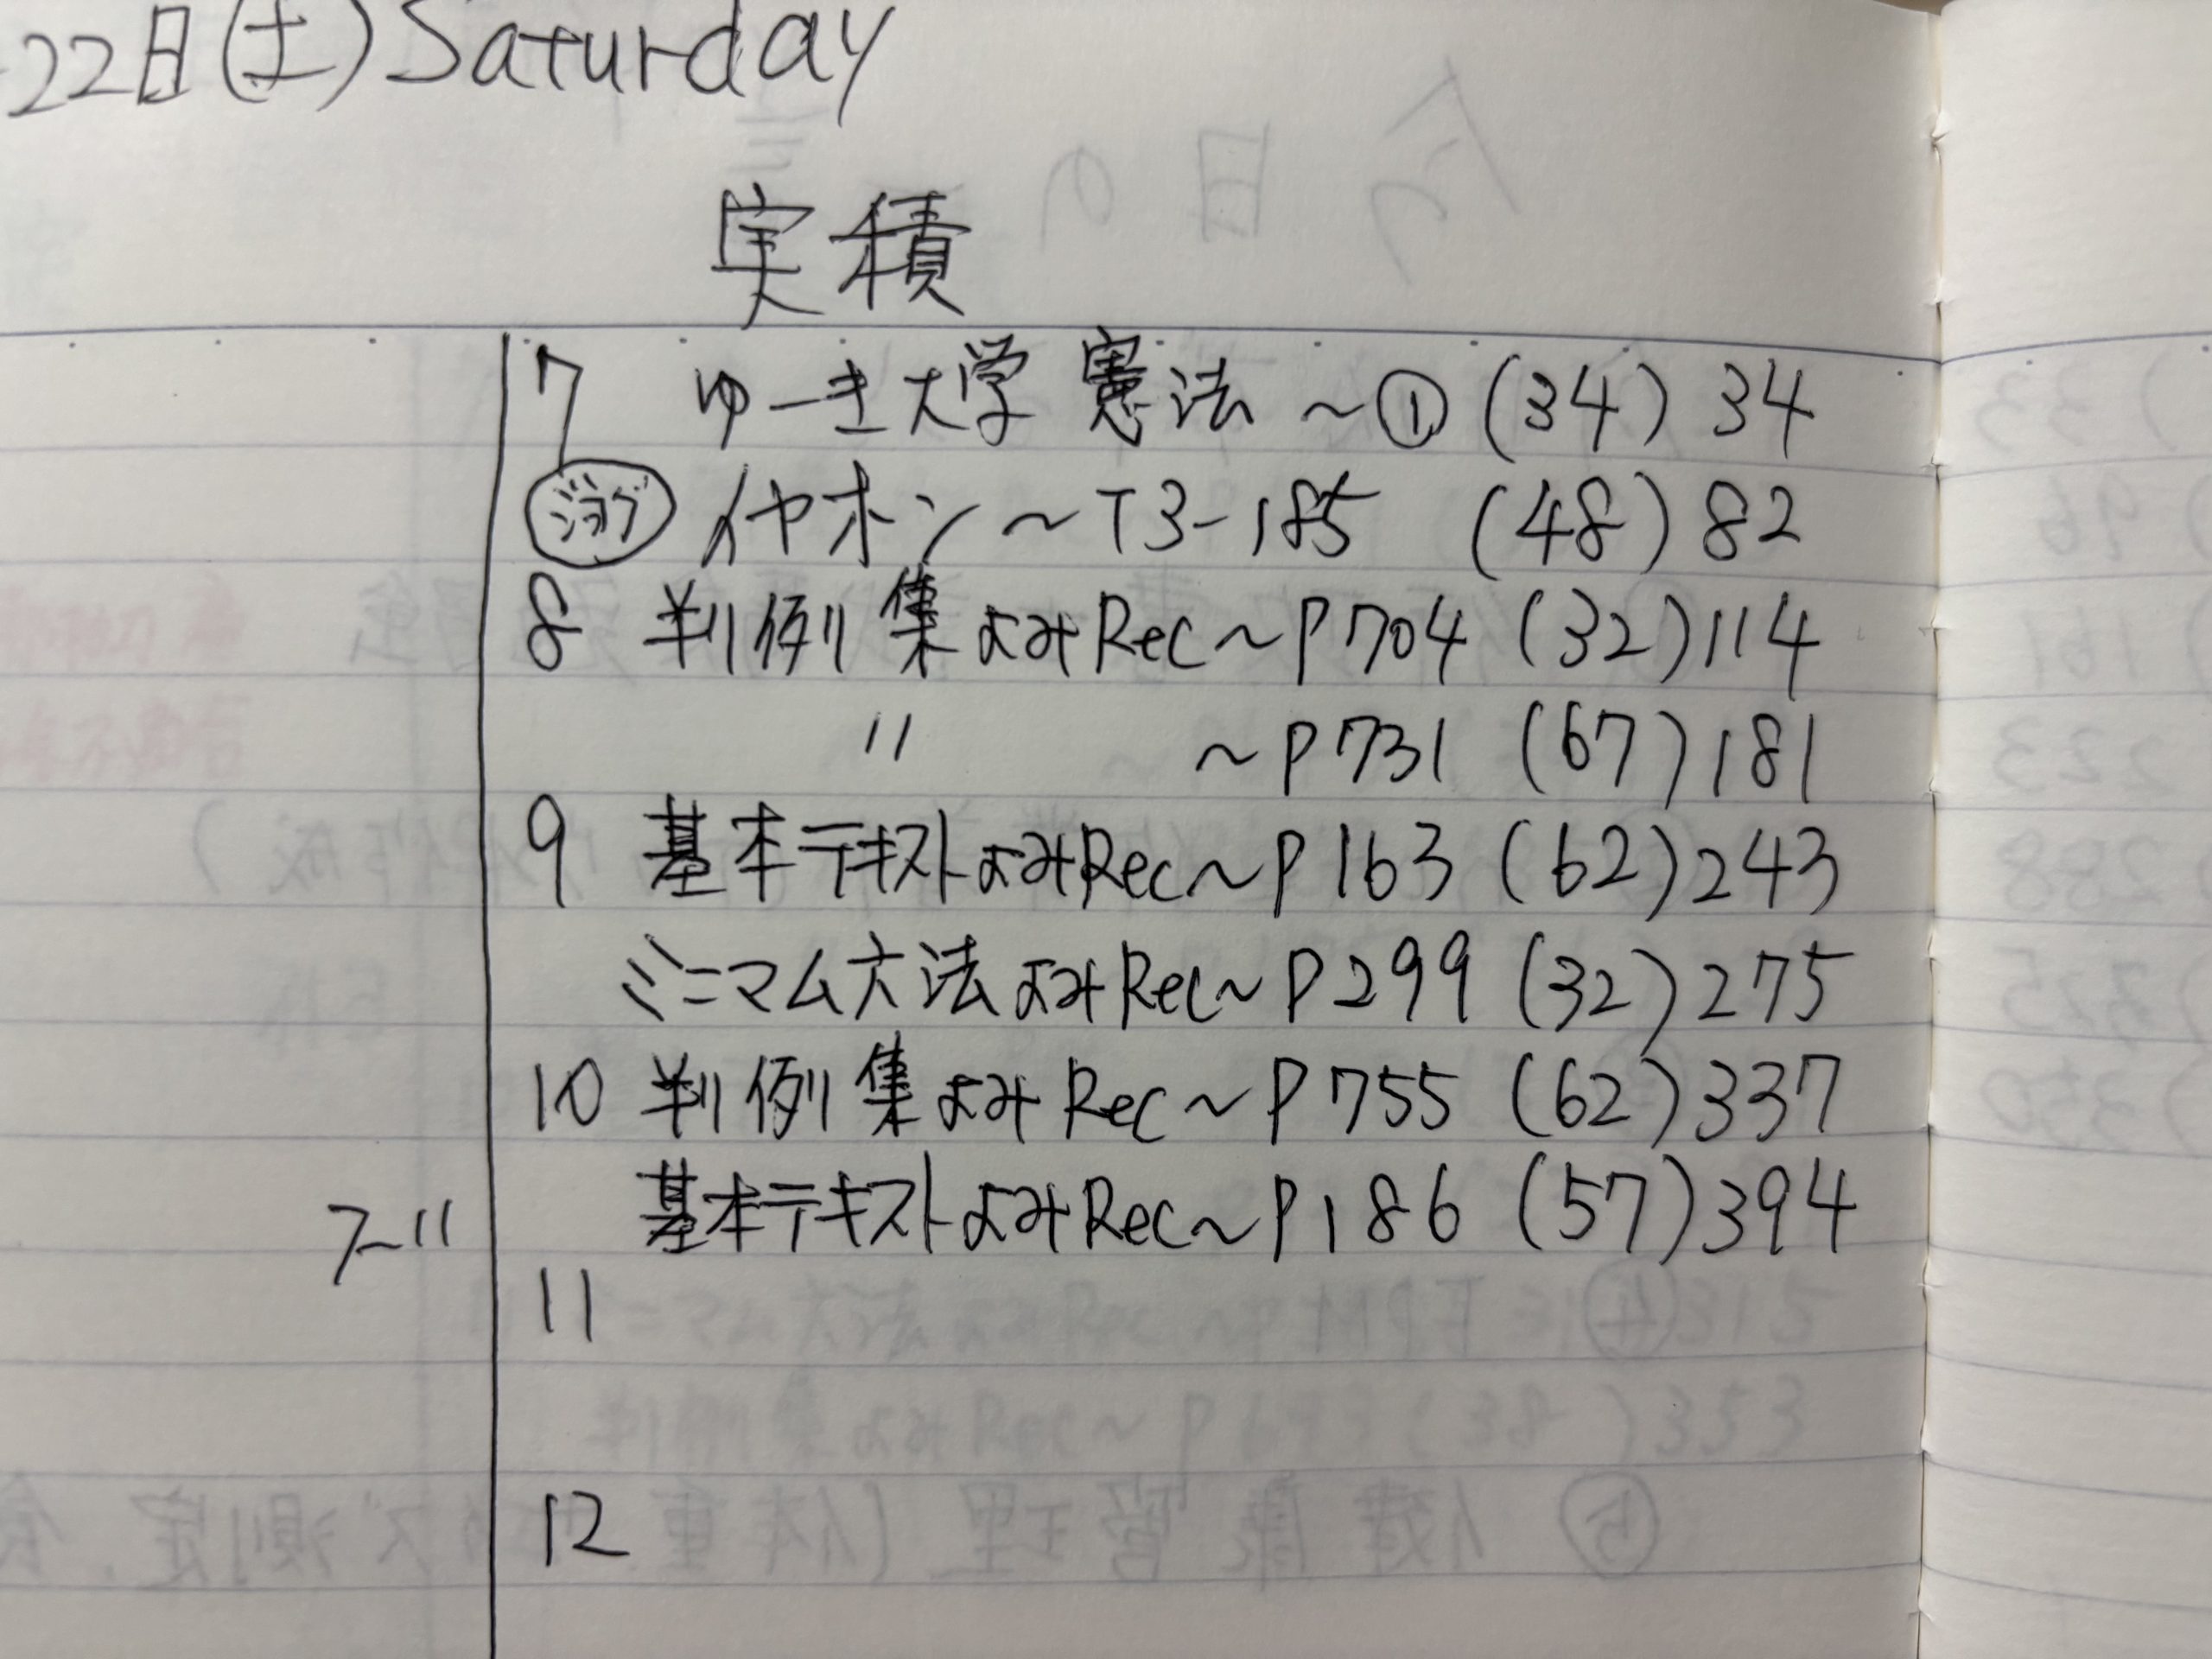 22日(土) Saturday
実積
7 ゆーき大学 憲法 ~① (34) 34
ジョグ イヤホン~T3-185 (48) 82
8 判例集よみRec~P704 (32) 114
〃 ~P731 (67) 181
9 基本テキストよみRec~P163 (62) 243
ミニマム六法よみRec~P299 (32) 275
10 判例集よみRec~P755 (62) 337
基本テキストよみRec~P186 (57) 394
7-11
11
12